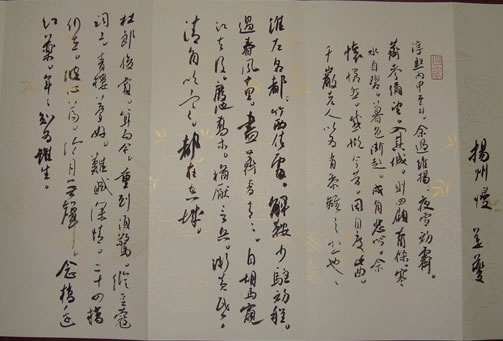 揚州慢 姜夔
淳熙丙申至日，余過維揚。夜雪初霽，
薺麥彌望。入其城，則四顧蕭條，寒
水自碧。暮色漸起，戍角悲吟。余
懷愴然，感慨今昔，因自度此曲。
千巖老人以為有黍離之悲也。
淮左名都，竹西佳處。解鞍少駐初程。
過春風十里。盡薺麥青青。自胡馬窺
江去後，廢池喬木，猶厭言兵。漸黃昏，
清角吹寒。都在空城。
杜郎俊賞，算而今，重到須驚。縱豆蔻
詞工，青樓夢好，難賦深情。二十四橋
仍在，波心蕩，冷月無聲。念橋邊
紅藥，年年知為誰生。